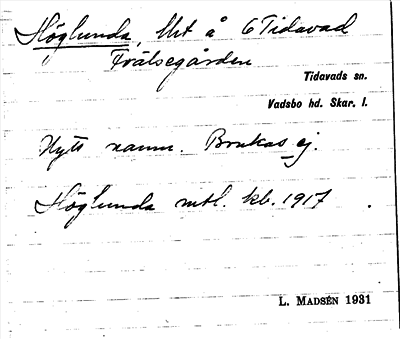 Höglunda, Het å 6 Tidavad
Frälsegården
Tidavads sn.
Vadsbo hd. Skar. l.
Nytt namn. Brukas ej.
Höglunda mtl. kb. 1917.
L. MADSÉN 1931